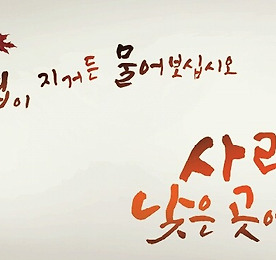 지거든 물어보십시오
사랑
낮은 곳에